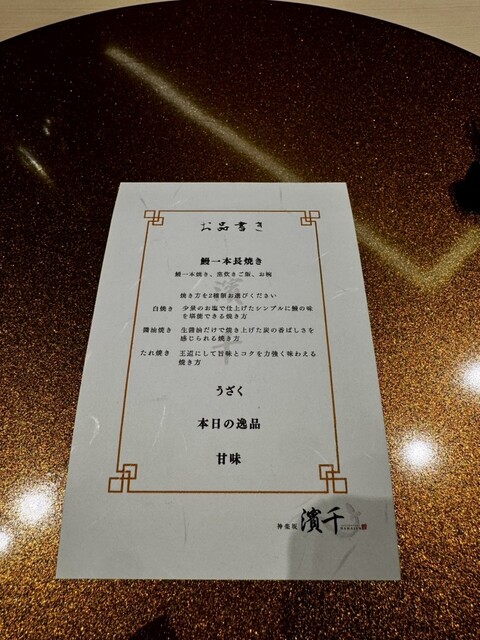 お品書き
鰻一本長焼き
鰻一本焼き、釜炊きご飯、お椀
焼き方を2種類お選びください
白焼き 少量のお塩で仕上げたシンプルに鰻の味
を堪能できる焼き方
醤油焼き 生醤油だけで焼き上げた炭の香ばしさを
感じられる焼き方
たれ焼き 王道にして旨味とコクを力強く味わえる
焼き方
うざく
本日の逸品
甘味
神楽坂 濱千
濱千